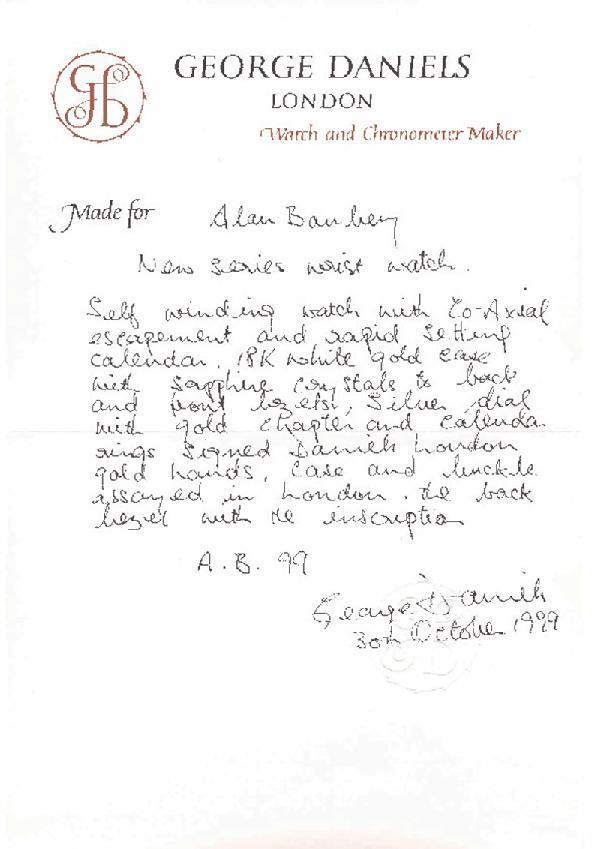 GEORGE DANIELS
LONDON
Watch and Chronometer Maker
Made for Alan Banbery
New series wrist watch.
Self winding watch with Co-Axial
escapement and rapid setting
calendar. 18K white gold case
with sapphire crystals to back
and front bezels, Silver dial
with gold chapter and calendar
rings signed Daniels London
gold hands, Case and buckle
assayed in London. The back
bezel with the inscription
A.B. 99
George Daniels
30th October 1999